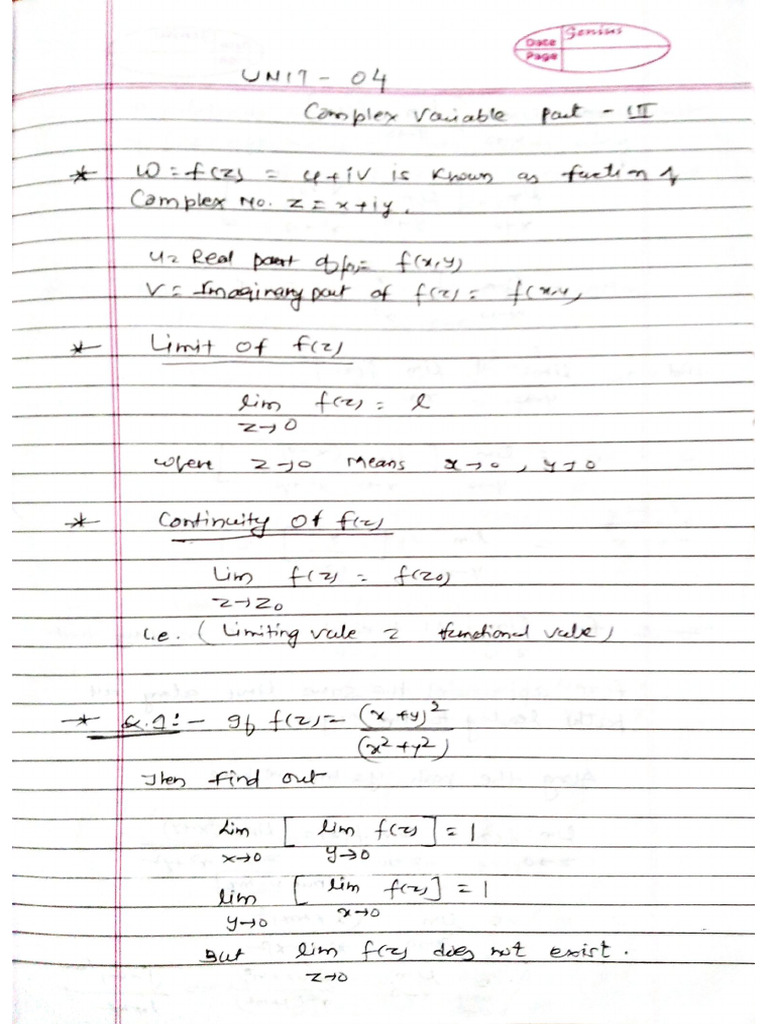 Genius
Date
Page
UNIT - 04
Complex Variable Part - III
* W = f(z) = u+iv is known as fuction of
Complex No. z = x+iy.
u = Real part of f(z) = f(x,y)
v = Imaginary part of f(z) = f(x,y)
* Limit of f(z)
lim f(z) = l
z→0
where z→0 means x→0, y→0
* Continuity of f(z)
Lim f(z) = f(z0)
z→z0
i.e. (Limiting vale = functional vale)
* Q.1:- If f(z) = (x+y)²
(x²+y²)
Then find out
Lim [ lim f(z) ] = 1
x→0 y→0
lim [ lim f(z) ] = 1
y→0 x→0
But lim f(z) does not exist.
z→0